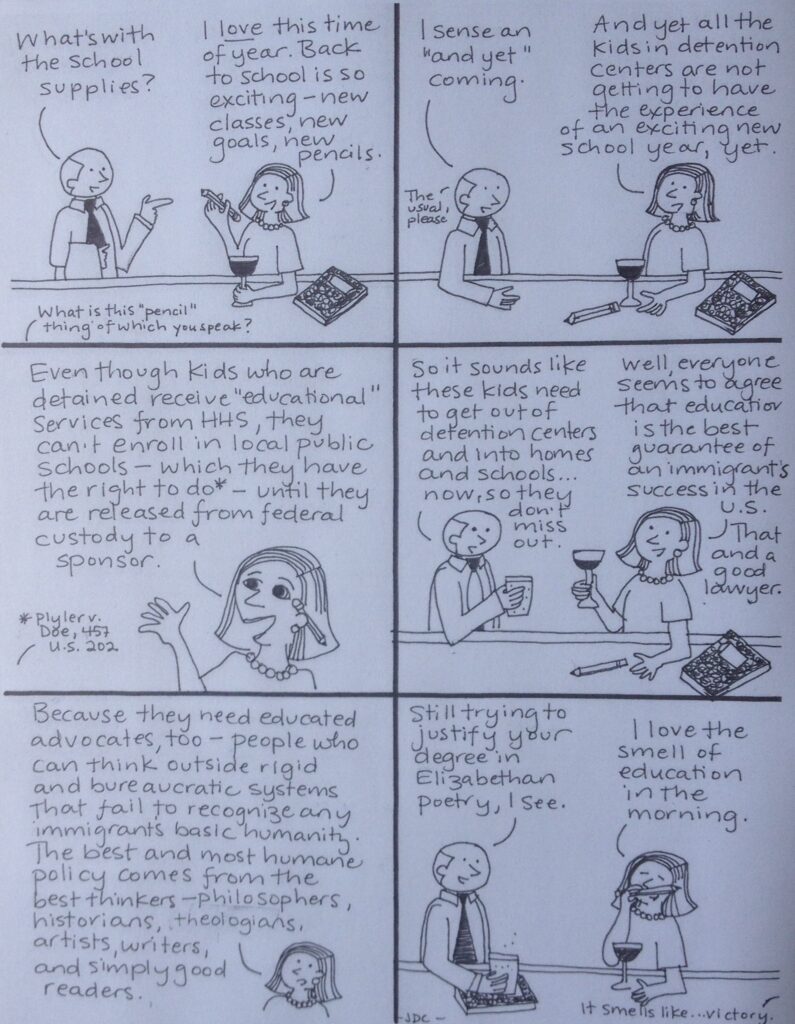 What's with
the school
supplies?
I love this time
of year. Back
to school is so
exciting – new
classes, new
goals, new
pencils.
What is this "pencil"
thing of which you speak?
I sense an
"and yet"
coming.
The
usual,
please
And yet all the
kids in detention
centers are not
getting to have
the experience
of an exciting new
school year, yet.
Even though kids who are
detained receive "educational"
services from HHS, they
can't enroll in local public
schools – which they have
the right to do* – until they
are released from federal
custody to a
sponsor.
* Plyler v.
Doe, 457
U.S. 202
So it sounds like
these kids need
to get out of
detention centers
and into homes
and schools...
now, so they
don't
miss
out.
Well, everyone
seems to agree
that education
is the best
guarantee of
an immigrant's
success in the
U.S.
That
and a
good
lawyer.
Because they need educated
advocates, too – people who
can think outside rigid
and bureaucratic systems
that fail to recognize any
immigrant's basic humanity.
The best and most humane
policy comes from the
best thinkers – philosophers,
historians, theologians,
artists, writers,
and simply good
readers.
Still trying to
justify your
degree in
Elizabethan
poetry, I see.
I love the
smell of
education
in the
morning.
It smells like...victory.
-JDC-